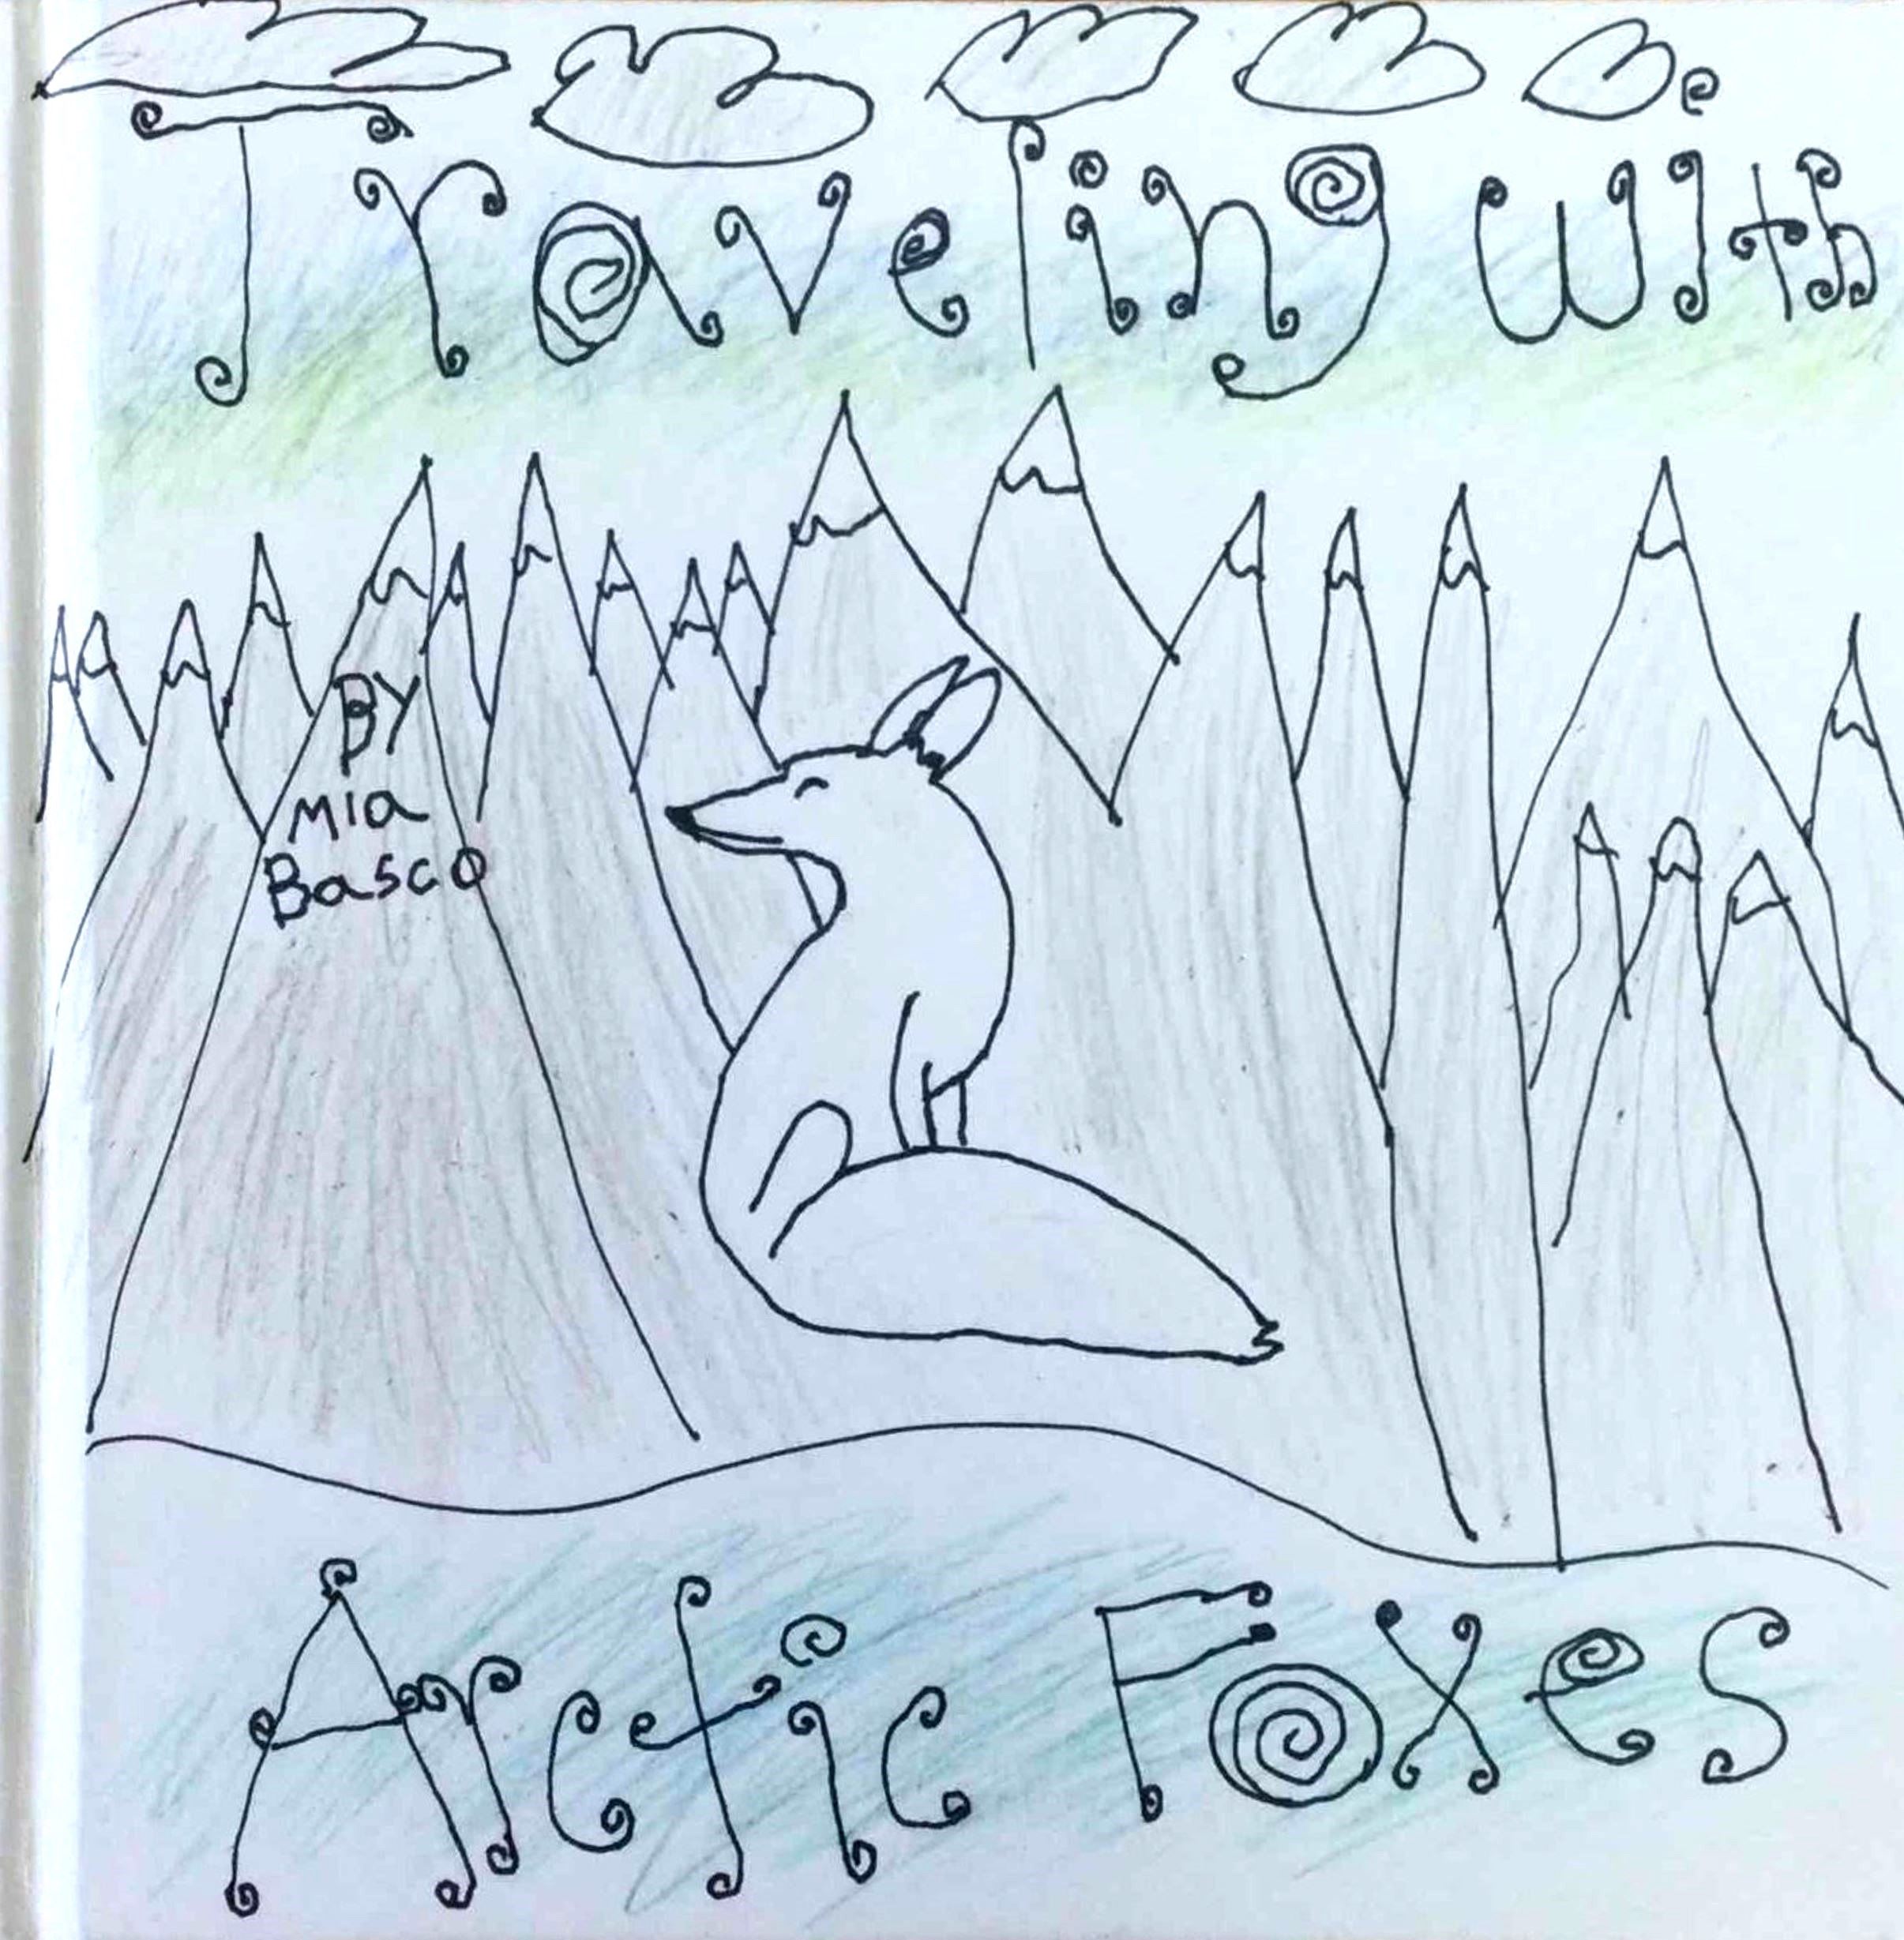 Traveling with
BY
Mia
Basco
Arctic Foxes